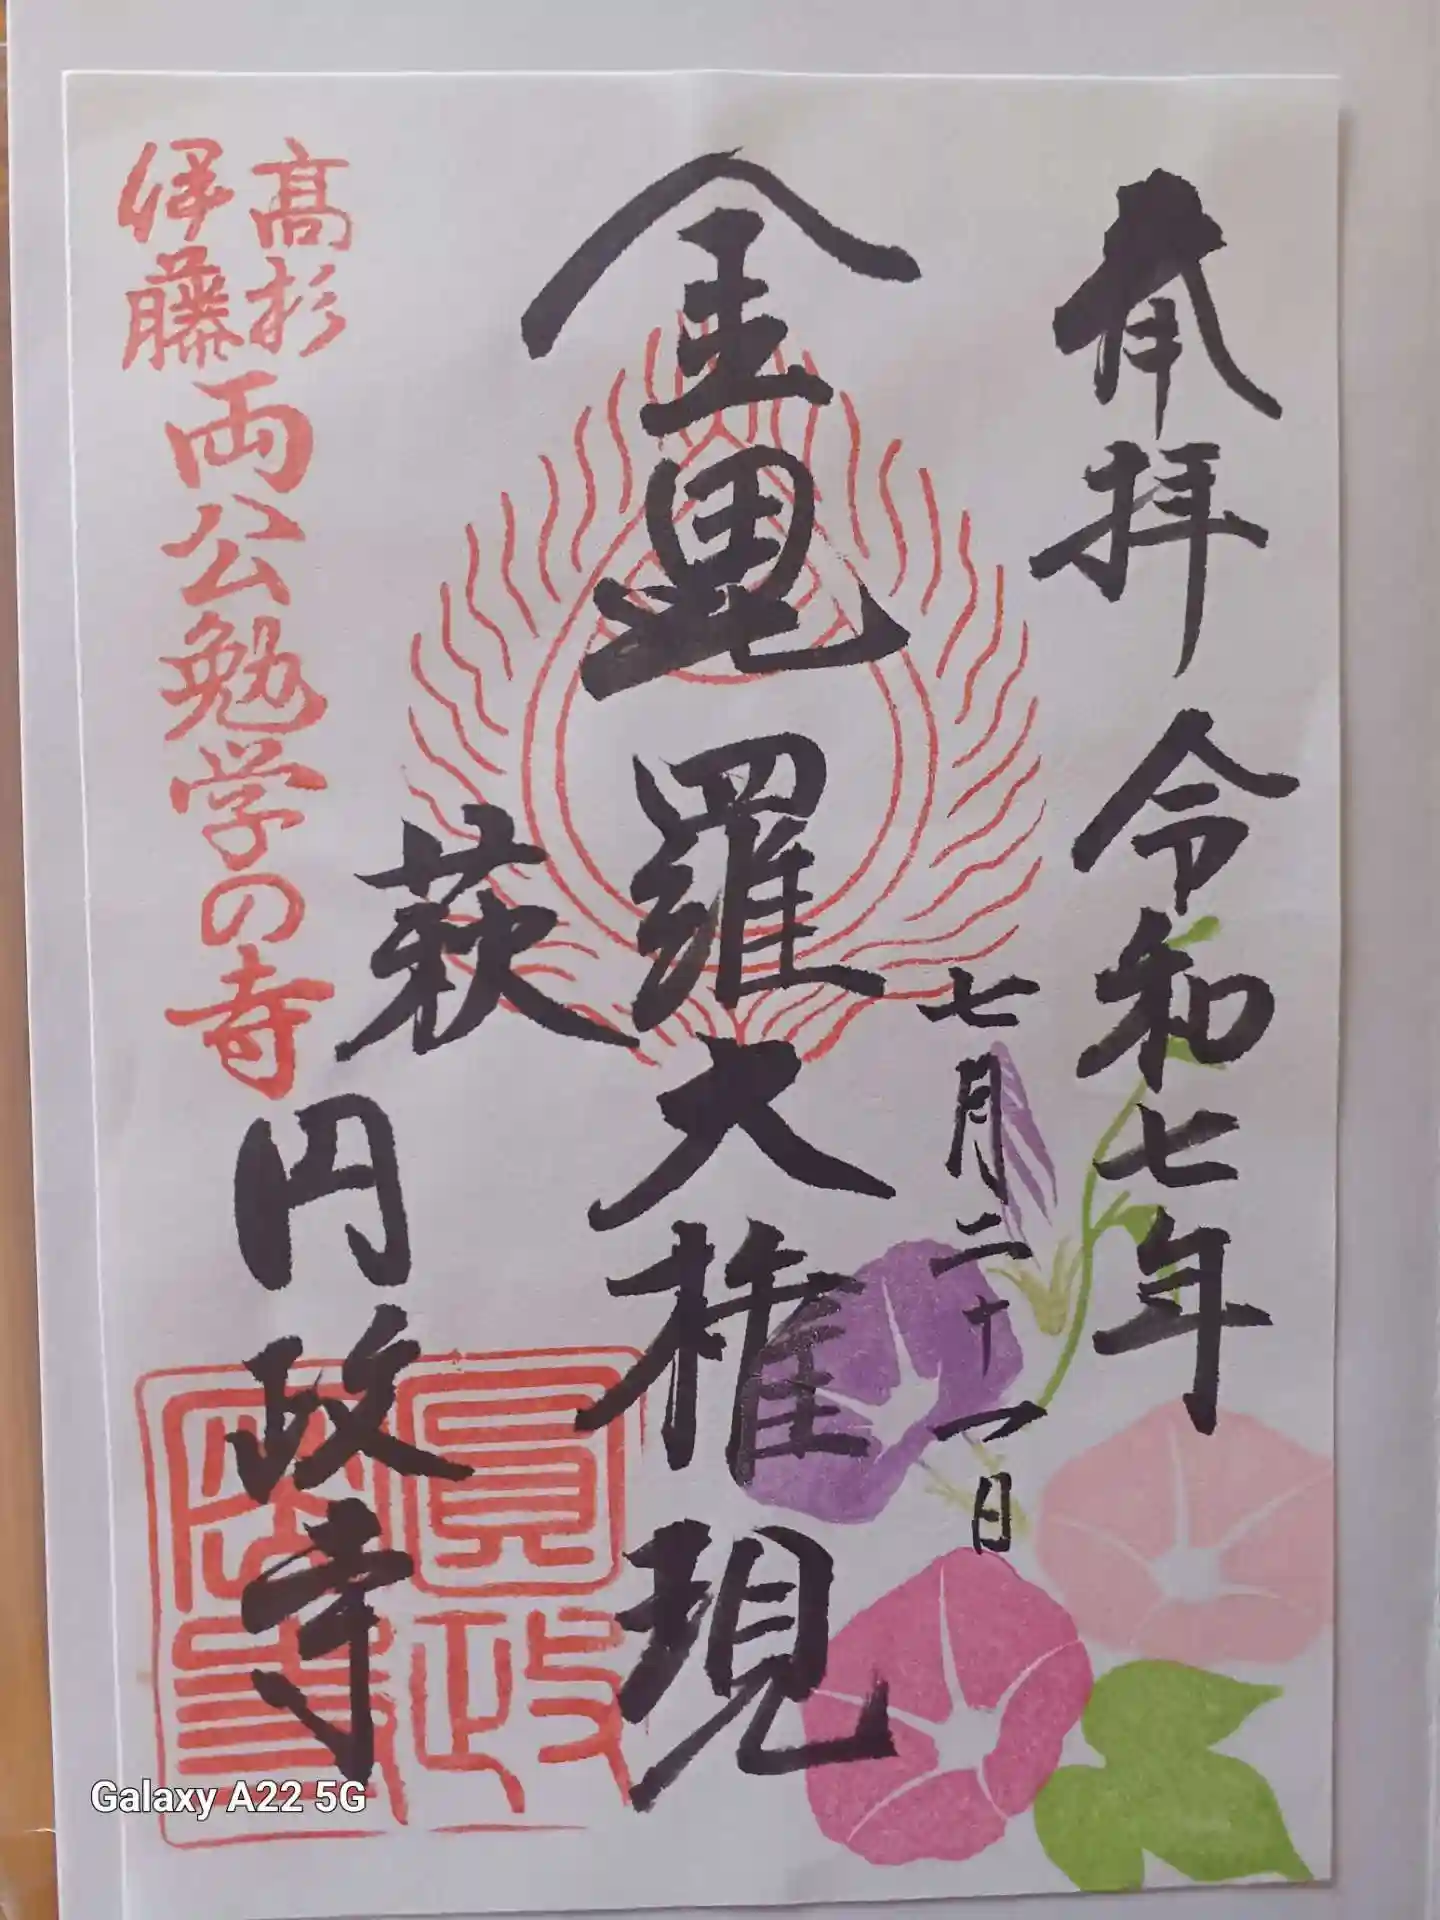 奉拝 令和七年
七月二十一日
金毘羅大権現
萩 円政寺
高杉
伊藤
両公勉学の寺
Galaxy A22 5G